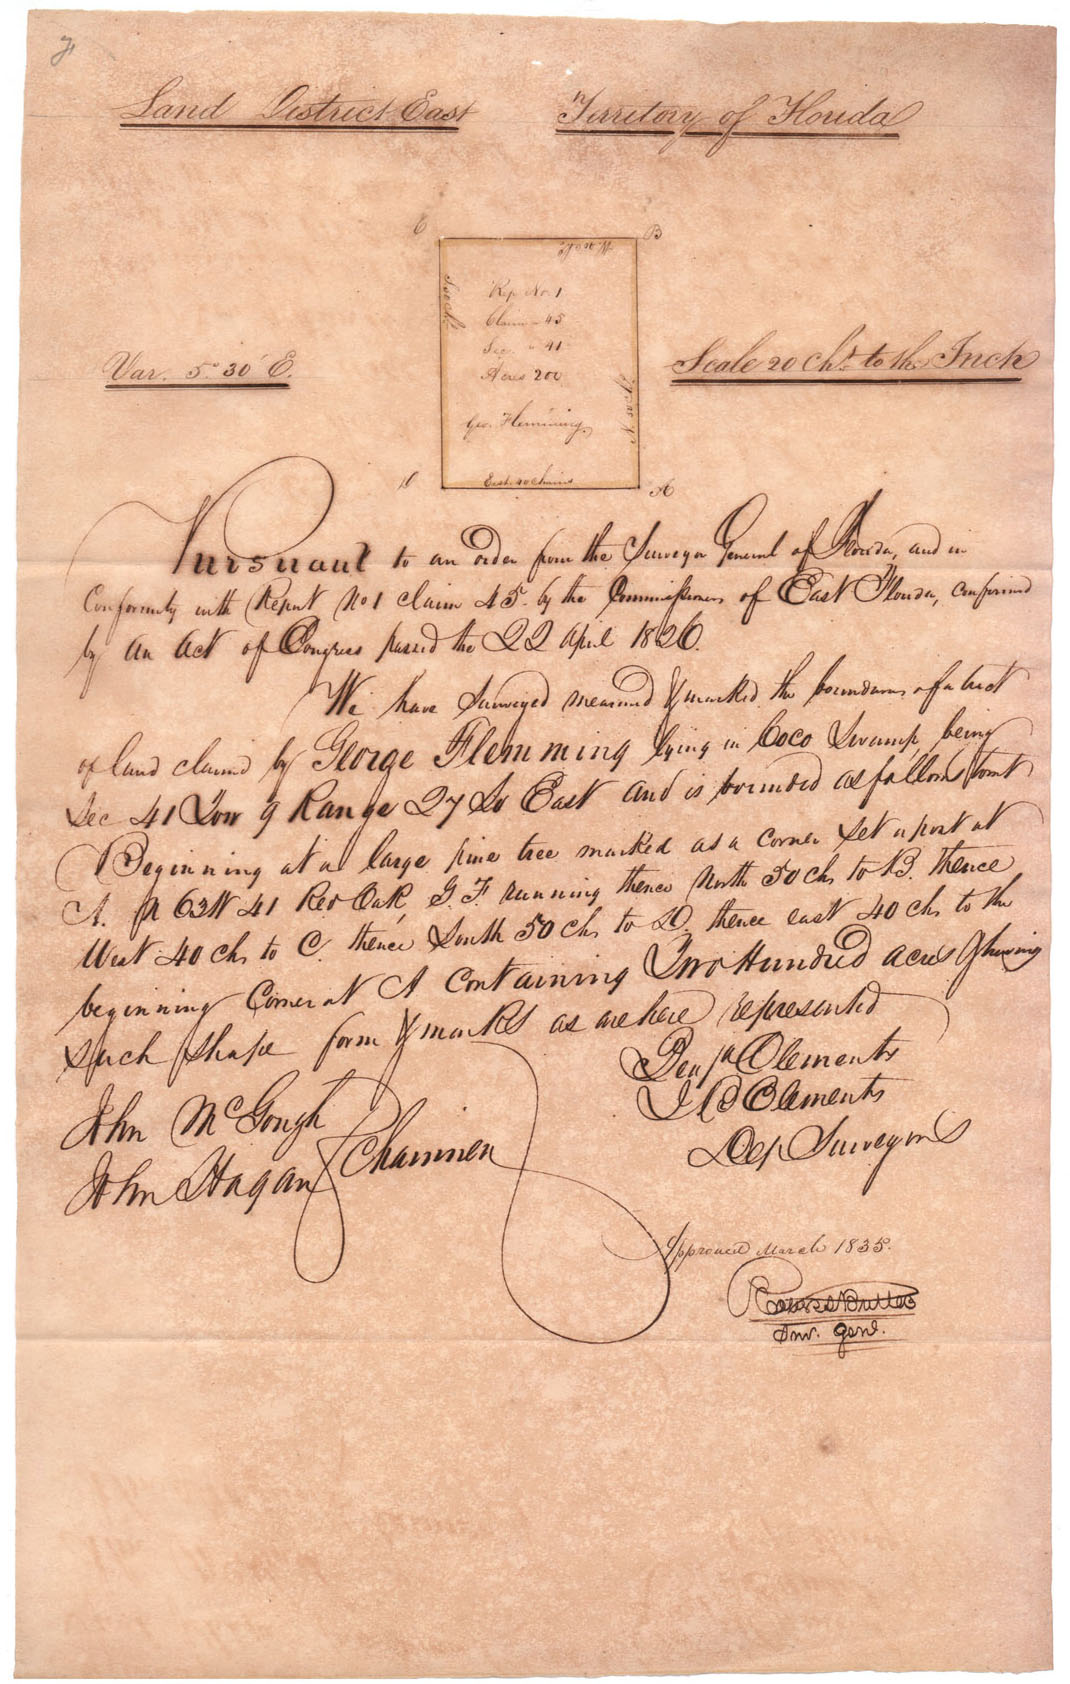 Land District East Territory of Florida
C B
West 40
South 50 ch
Rep No 1
Claim " 45
Sec. " 41
Acres 200
Geo. Flemming
East 40 chains
D A
Var. 5° 30' E.
Scale 20 chs to the Inch
Pursuant to an order from the Surveyor General of Florida, and in
Conformity with Report No 1 claim 45 by the Commissioners of East Florida, confirmed
by an act of Congress passed the 22 April 1826.
We have Surveyed measured & marked the boundaries of a tract
of land claimed by George Flemming lying in Coco Swamp, being
Sec 41 Tow 9 Range 27 So East and is bounded as follows towit
Beginning at a large pine tree marked as a corner set a post at
A. N 63 W 41 Red Oak, G. F. running thence North 50 chs to B. thence
West 40 chs to C. thence South 50 chs to D. thence east 40 chs to the
beginning Corner at A containing Two Hundred acres & having
such shape form & marks as are here represented
Benja Clements
J B Clements
Dep Surveyors
John McGough
John Hagan } Chainmen
Approved March 1835.
Robert Butler
Surv. Genl.